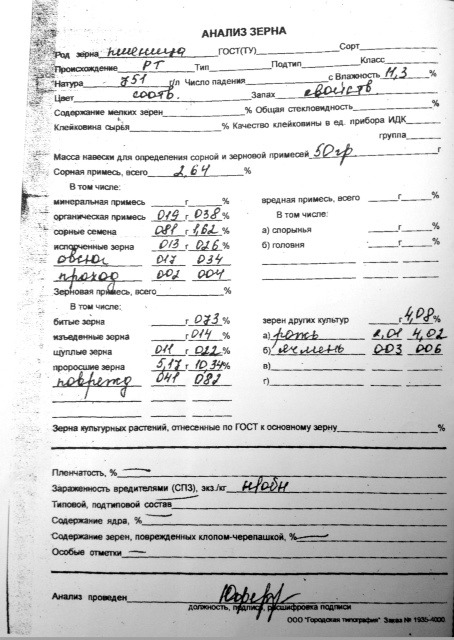 АНАЛИЗ ЗЕРНА
Род зерна пшеница ГОСТ(ТУ) Сорт
Происхождение РТ Тип Подтип Класс
Натура 751 г/л Число падения с Влажность 11,3 %
Цвет соотв. Запах свойств
Содержание мелких зерен % Общая стекловидность %
Клейковина сырья % Качество клейковины в ед. прибора ИДК
группа
Масса навески для определения сорной и зерновой примесей 50гр г
Сорная примесь, всего 2,64 %
В том числе:
минеральная примесь г % вредная примесь, всего г %
органическая примесь 019 г 038 % В том числе:
сорные семена 081 г 1,62 % а) спорынья г %
испорченные зерна 013 г 026 % б) головня г %
овсюг 017 034
проход 002 004
Зерновая примесь, всего %
В том числе:
битые зерна г 073 % зерен других культур г 4,08 %
изъеденные зерна г 014 % а) рожь 2.01 4,02
щуплые зерна 011 г 022 % б) ячмень 003 006
проросшие зерна 5,17 г 10,34 % в)
поврежд 041 082 г)
Зерна культурных растений, отнесенные по ГОСТ к основному зерну %
Пленчатость, %
Зараженность вредителями (СПЗ), экз./кг н/обн
Типовой, подтиповой состав
Содержание ядра, %
Содержание зерен, поврежденных клопом-черепашкой, %
Особые отметки
Анализ проведен
должность, подпись, расшифровка подписи
ООО "Городская типография" Заказ № 1935-4000